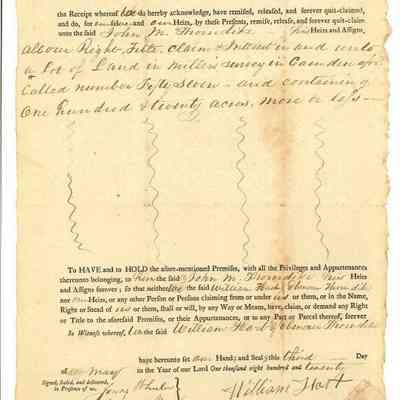 the Receipt whereof we do hereby acknowledge, have remised, released, and forever quit-claimed,
and do, for ourselves and our Heirs, by these Presents, remise, release, and forever quit-claim
unto the said John M. Thorndike his Heirs and Assigns
all our Right, Title, claim & Interest in and unto
a lot of Land in Miller's survey in Camden
Called number Fifty Seven - and containing
One hundred & twenty acres, more or less -
To HAVE and to HOLD the afore-mentioned Premises, with all the Privileges and Appurtenances
thereunto belonging, to him the said John M Thorndike his Heirs
and Assigns forever; so that neither we the said William Hart & Thorndike
nor our Heirs, or any other Person or Persons claiming from or under us or them, or in the Name,
Right or Stead of us or them, shall or will, by any Way or Means, have, claim, or demand any Right
or Title to the aforesaid Premises, or their Appurtenances, or to any Part or Parcel thereof, forever
In Witness whereof, We the said William Hart & Thorndike
have hereunto set our Hands and Seals this third Day
of May in the Year of our Lord One thousand eight hundred and twenty
Signed, Sealed, and delivered,
in Presence of us,
William Hart